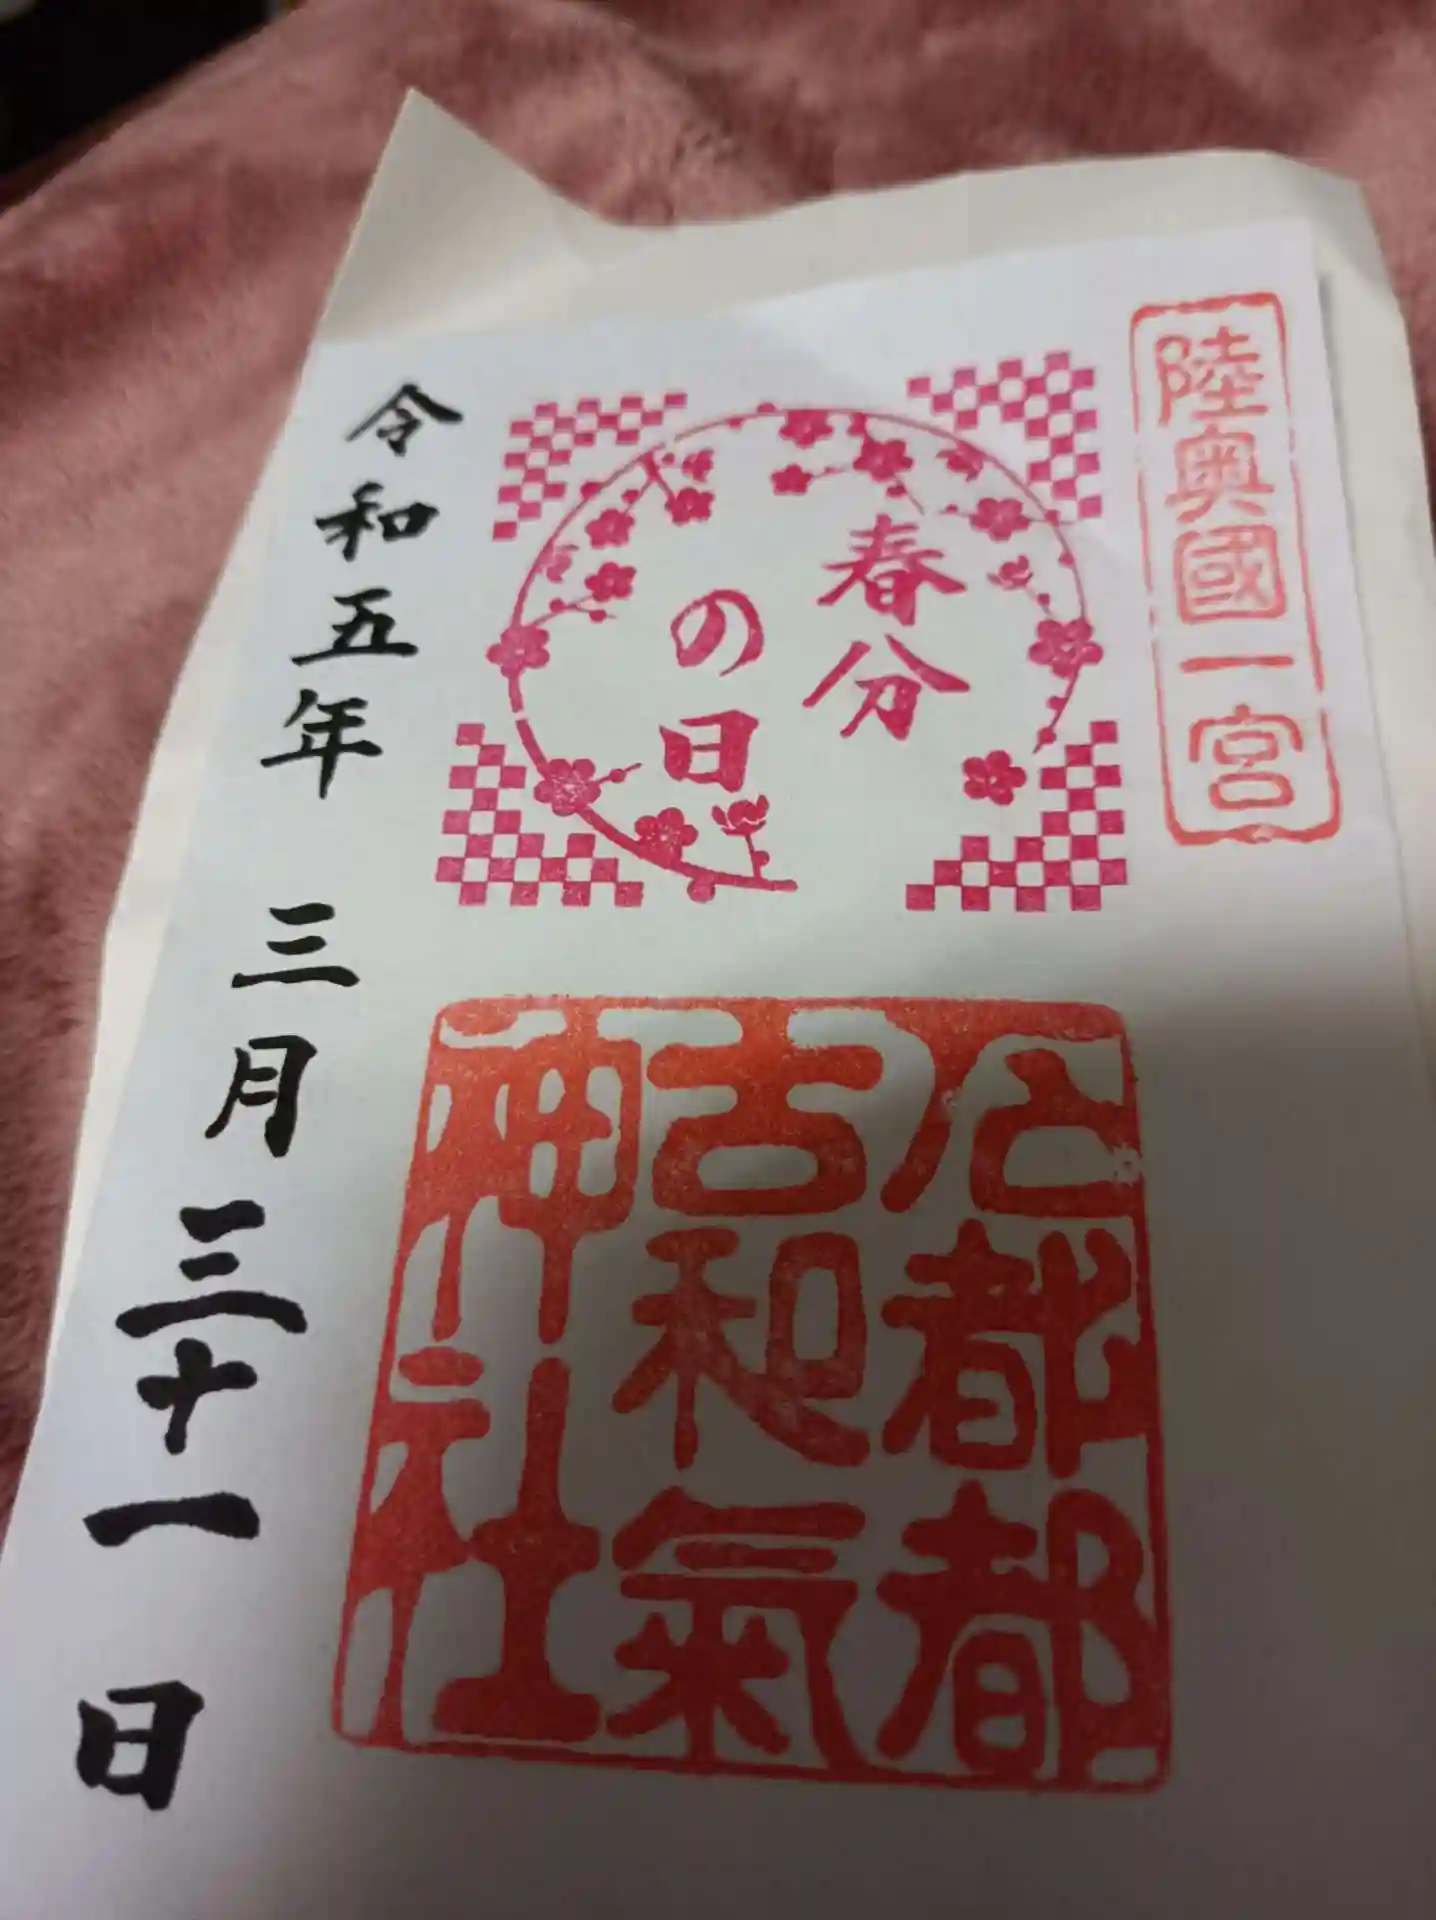 陸奥國一宮
春分
の日
石都都
古和氣
神社
令和五年 三月三十一日